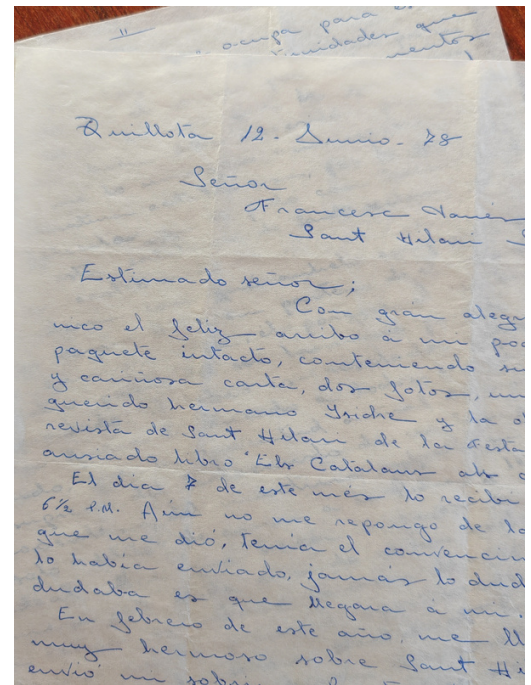 ocupa para
Quillota 12. Junio. 78
Señor
Francesc
Sant Hilari S
Estimado señor;
Con gran alegr
nico el feliz arribo a un po
paquete intacto, conteniendo su
y cariñosa carta, dos fotos, un
querido hermano Isidre y la o
revista de Sant Hilari de la Festa
ansiado libro "Els Catalans als c
El dia 7 de este mes lo recibi
6½ P.M. Aún no me repongo de la
que me dió, tenia el convencim
lo habia enviado, jamás lo dud
dudaba es que llegara a mi.
En febrero de este año, me ll
muy hermoso sobre Sant Hi
envió mi sobri